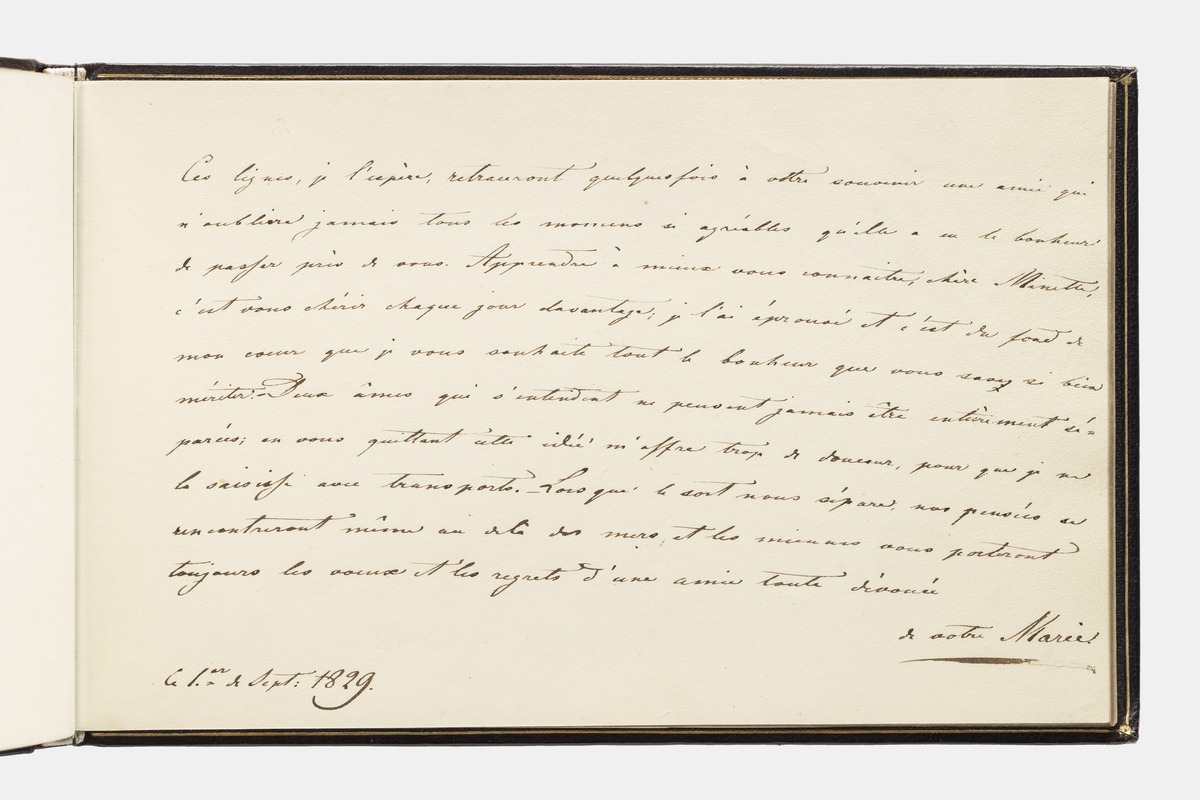 Ces lignes, je l'espère, retraceront quelquesfois à votre souvenir une amie qui
n'oubliera jamais tous les momens si agréables qu'elle a eu le bonheur
de passer près de vous. Apprendre à mieux vous connaitre, chère Minette,
c'est vous chérir chaque jour davantage; je l'ai éprouvé et c'est du fond de
mon coeur que je vous souhaite tout le bonheur que vous savez si bien
mériter. – Deux âmes qui s'entendent ne peuvent jamais être entièrement sé=
parées; en vous quittant cette idée m'offre trop de douceur, pour que je ne
la saisisse avec transports. – Lorsque le sort nous sépare, nos pensées se
rencontreront même au delà des mers, et les miennes vous porteront
toujours les voeux et les regrets d'une amie toute dévouée
de votre Marie.
Ce 1.er de Sept: 1829.